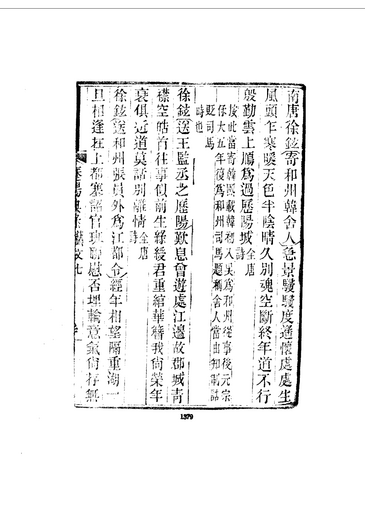 南唐徐鉉寄和州韓舍人急景駸駸度遙懷處處生
風頭乍寒暖天色半陰晴久別魂空斷終年道不行
殷勤雲上鴈爲過歷陽城全唐詩
按此當寄韓熙載韓初入吳爲和州從事後元宗
任大五年復爲和州司馬題稱舍人當由知制誥
貶司馬
時也
徐鉉送王監丞之歷陽歎息曾遊處江邊故郡城青
襟空皓首往事似前生綠綬君重綰華簪我尚榮年
衰俱近道莫話別離情全唐詩
徐鉉送和州張員外爲江都令經年相望隔重湖一
旦相逢在上都塞詔官班聊慰否埋輪意氣尚存無
1379